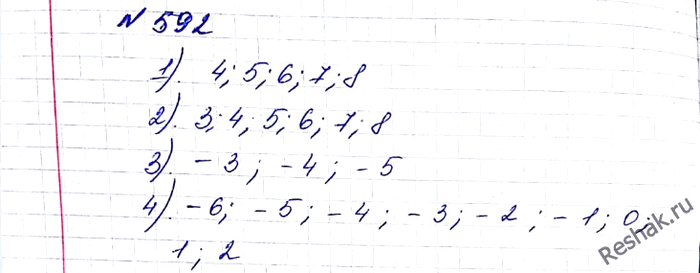 N 592
1). 4; 5; 6; 7; 8
2). 3; 4; 5; 6; 7; 8
3). -3; -4; -5
4). -6; -5; -4; -3; -2; -1; 0;
1; 2
Reshak.ru